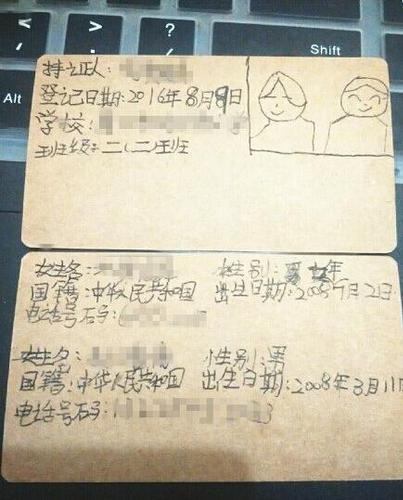 <
>
?
Shift
Alt
持证人:
登记日期:2016年8月9日
学校:
班级:二(二)班
姓名: 性别: 女
国籍:中华人民共和国 出生日期:2008年 月2日
电话号码:
姓名: 性别:男
国籍:中华人民共和国 出生日期:2008年3月11
电话号码: